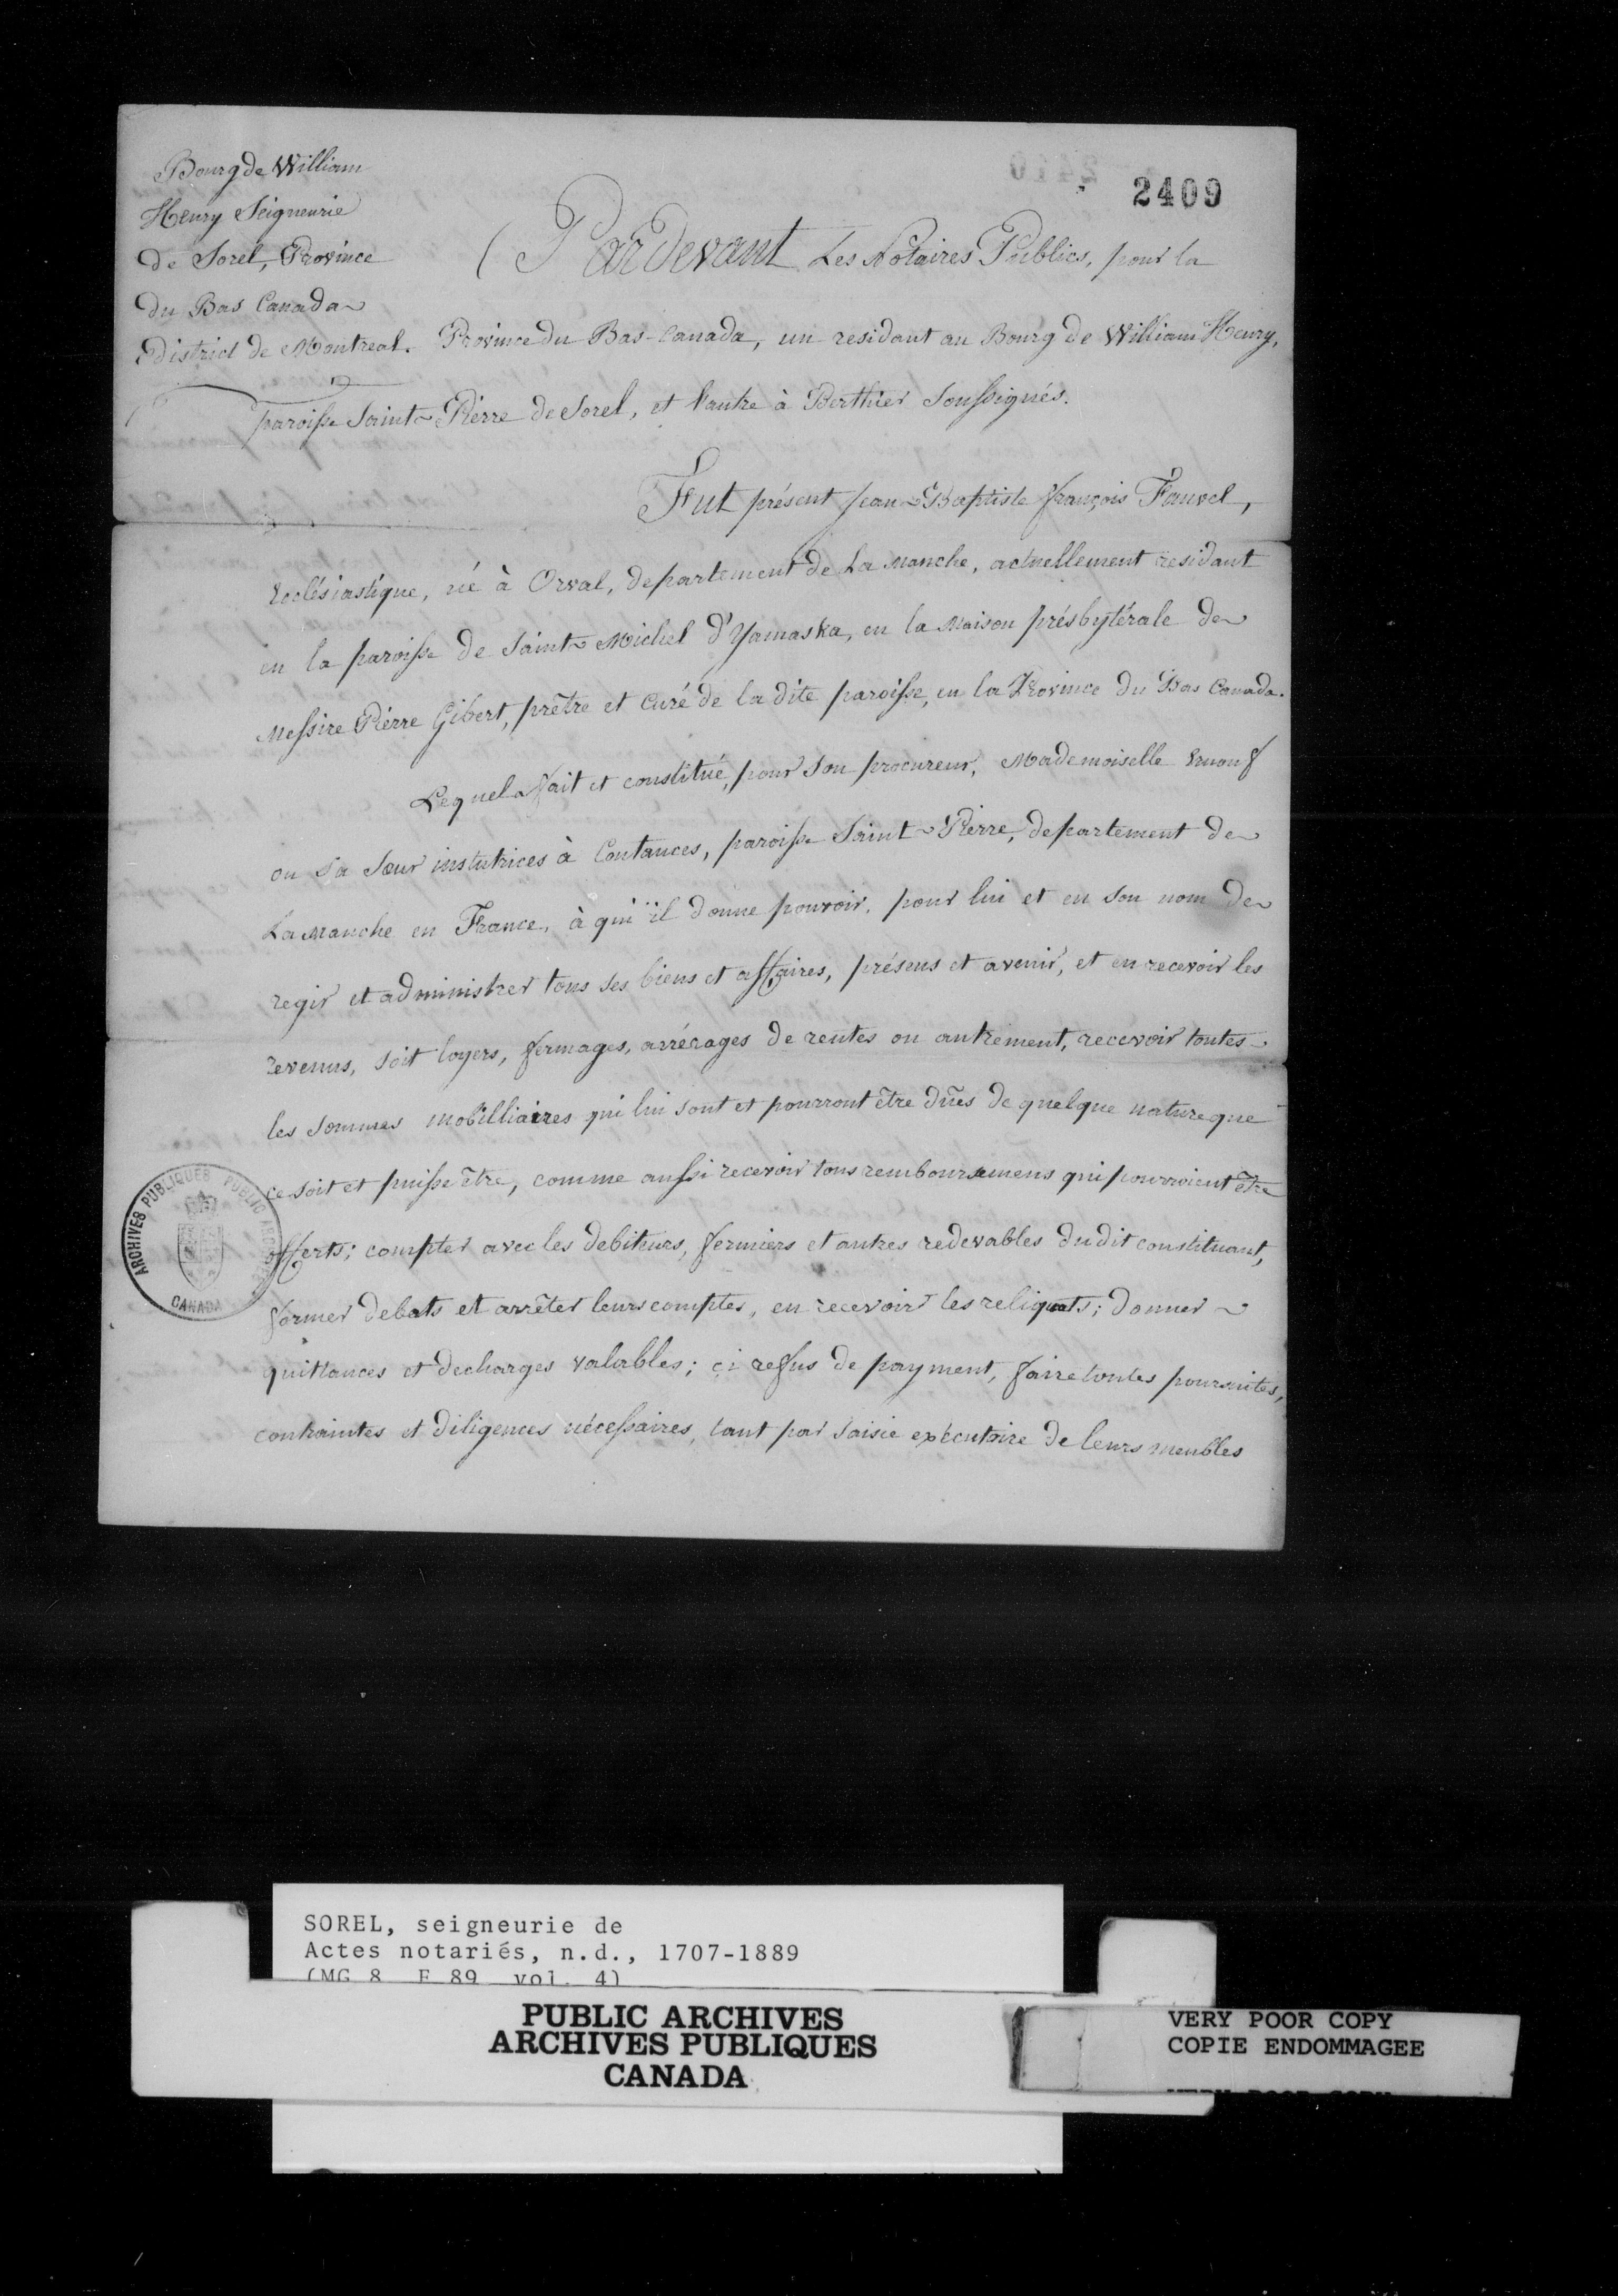 2409
Bourg de William
Henry Seigneurie
de Sorel, Province
du Bas Canada
District de Montreal.
Pardevant Les Notaires Publics, pour la
Province du Bas-Canada, un residant au Bourg de William Henry,
paroisse Saint Pierre de Sorel, et l'autre à Berthier Soussignés.
Fut présent Jean Baptiste françois Fauvel,
Ecclésiastique, né à Orval, departement de La Manche, actuellement residant
en la paroisse de Saint Michel d'Yamaska, en la Maison présbytérale de
Messire Pierre Gibert, prêtre et Curé de la dite paroisse, en la Province du Bas Canada.
Lequel a fait et constitué, pour son procureur, Mademoiselle
ou sa Sœur institutrices à Coutances, paroisse Saint Pierre, departement de
La Manche en France, à qui il donne pouvoir, pour lui et en son nom de
regir et administrer tous ses biens et affaires, présens et avenir, et en recevoir les
revenus, soit loyers, fermages, arrérages de rentes ou autrement, recevoir toutes
les sommes mobilliaires qui lui sont et pourront être dües de quelque nature que
ce soit et puisse être, comme aussi recevoir tous remboursemens qui pourroient être
offerts; compter avec les debiteurs, fermiers et autres redevables du dit constituant,
former debats et arrêter leurs comptes, en recevoir les reliquats; donner
quittances et decharges valables; çi refus de payment, faire toutes poursuites,
contraintes et diligences nécessaires, tant par saisie exécutoire de leurs meubles
ARCHIVES PUBLIQUES PUBLIC ARCHIVES
CANADA
SOREL, seigneurie de
Actes notariés, n.d., 1707-1889
(MG 8 F 89 vol. 4)
PUBLIC ARCHIVES
ARCHIVES PUBLIQUES
CANADA
VERY POOR COPY
COPIE ENDOMMAGEE
VERY POOR COPY